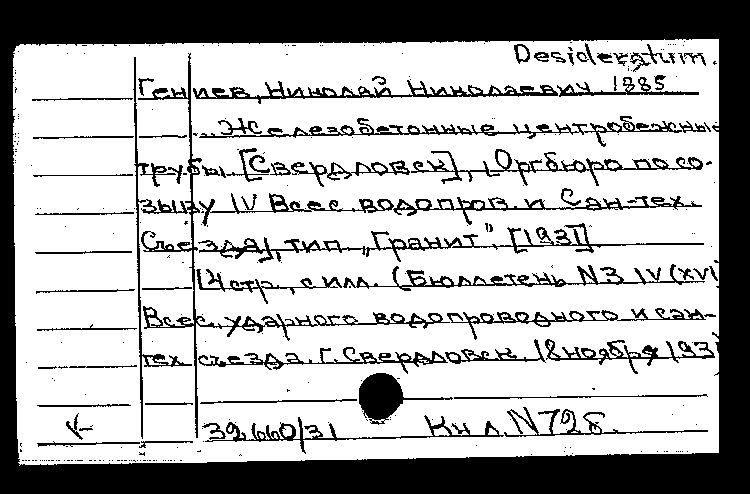 Desideratum.
Гениев, Николай Николаевич 1885
... Железобетонные центробежные
трубы. [Свердловск], [Оргбюро по со-
зыву IV Всес. водопров. и Сан-тех.
Съезда], тип. „Гранит“, [1931]
14 стр., с илл. (Бюллетень N3 IV (XVI)
Всес. ударного водопроводного и сан-
тех съезда. г. Свердловск. 18 ноября 193
39.660/31 Кн л. N728.